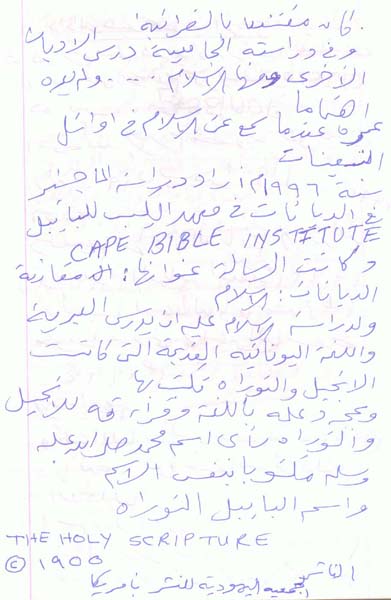 كان مقتنعا بالنصرانية.
وفي دراسته الجامعية درس الاديان
الأخرى ومنها الاسلام .... ولم يعره
اهتماما
عمره عندما سمع عن الاسلام في اوائل
التسعينات
سنة ١٩٩٦م أراد دراسة الماجستير
في الديانات في معهد الكيب للبايبل
CAPE BIBLE INSTITUTE
وكانت الرسالة عنوانها: مقارنة
الديانات: الاسلام
ولدراسة الاسلام عليه ان يدرس العبرية
واللغة اليونانية القديمة التي كانت
الانجيل والتوراه تكتب بها
وبعد علمه باللغة وقراءته للانجيل
والتوراه رأى اسم محمد صلى الله عليه
وسلم مكتوبا بنفس الاسم
واسم البايبل التوراه
THE HOLY SCRIPTURE
© 1900
الناشر
الجمعية اليهودية للنشر بامريكا